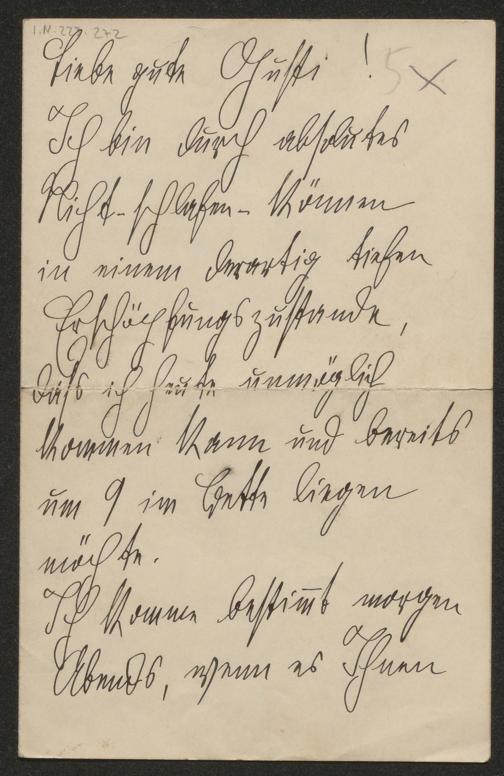 I.N. 227.272
Liebe gute Gusti! 5 x
Ich bin durch absolutes
Nicht-schlafen-können
in einem derartig tiefen
Erschöpfungszustande,
dass ich heute unmöglich
kommen kann und bereits
um 9 im Bette liegen
möchte.
Ich komme bestimmt morgen
Abends, wenn es Ihnen